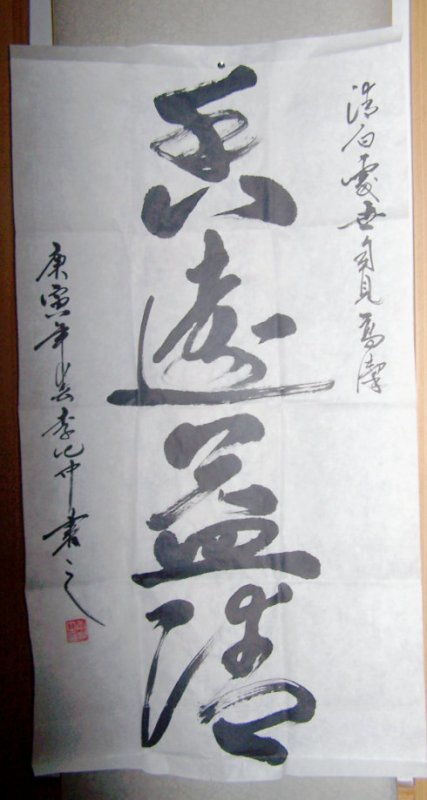 清白處世自見高潔
香遠益清
庚寅年春李仲書之